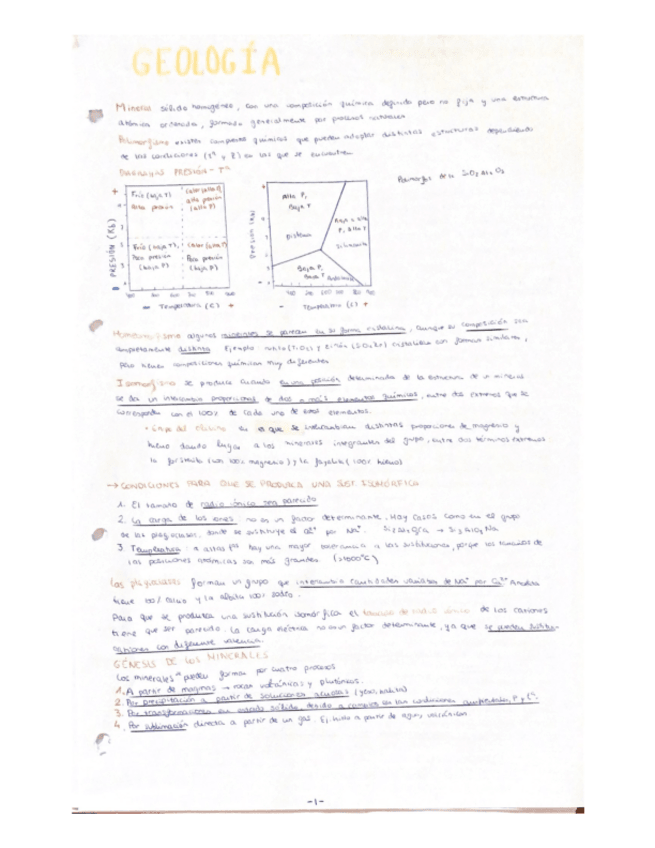 GEOLOGÍA
Mineral sólido homogéneo, con una composición química definida pero no fija y una estructura
atómica ordenada, formado generalmente por procesos naturales
Polimorfismo existen compuestos químicos que pueden adoptar distintas estructuras dependiendo
de las condiciones (Tª y P) en las que se encuentren
DIAGRAMAS PRESIÓN - Tª
Polimorfos de la SiO2 Al2 O3
Frío (baja T) Calor (alta T)
alta presión alta presión
(alta P)
Frío (baja T), Calor (alta T)
Poca presión Poca presión
(baja P) (baja P)
PRESIÓN (Kb)
Temperatura (C) +
Alta P,
Baja T
Distena
Baja o alta
P, Alta T
Silimanita
Baja P,
Baja T Andalucita
PRESIÓN (Kb)
- Temperatura (C) +
Homeomorfismo algunos minerales se parecen en su forma cristalina, aunque su composición sea
completamente distinta. Ejemplo rutilo (TiO2) y circón (SiO4Zr) cristalizan con formas similares,
pero tienen composiciones químicas muy diferentes
Isomorfismo se produce cuando en una posición determinada de la estructura de un mineral
se da un intercambio proporcional de dos o más elementos químicos, entre dos extremos que se
corresponden con el 100% de cada uno de esos elementos.
• Grupo del olivino en el que se intercambian distintas proporciones de magnesio y
hierro dando lugar a los minerales integrantes del grupo, entre dos términos extremos
la forsterita (con 100% magnesio) y la fayalita (100% hierro)
→ CONDICIONES PARA QUE SE PRODUZCA UNA SUST. ISOMÓRFICA
1. El tamaño de radio iónico sea parecido
2. La carga de los iones: no es un factor determinante. Hay casos como en el grupo
de las plagioclasas, donde se sustituye el Ca2+ por Na+.
3. Temperatura: a altas Tª hay una mayor tolerancia a las sustituciones, porque los tamaños de
las posiciones atómicas son más grandes
Las plagioclasas forman un grupo que intercambia cantidades variables de Na+ por Ca2+ Anortita
tiene 100% calcio y la albita 100% sodio.
Para que se produzca una sustitución isomórfica el tamaño de radio iónico de los cationes
tiene que ser parecido. La carga eléctrica no es un factor determinante, ya que se pueden sustituir
cationes con diferente valencia.
GÉNESIS DE LOS MINERALES
Los minerales pueden formar por cuatro procesos
1. A partir de magmas → rocas volcánicas y plutónicas.
2. Por precipitación a partir de soluciones acuosas (yeso, halita)
3. Por transformaciones en estado sólido, debido a cambios en las condiciones P y Tª.
4. Por sublimación directa a partir de un gas. Ej.
-1-